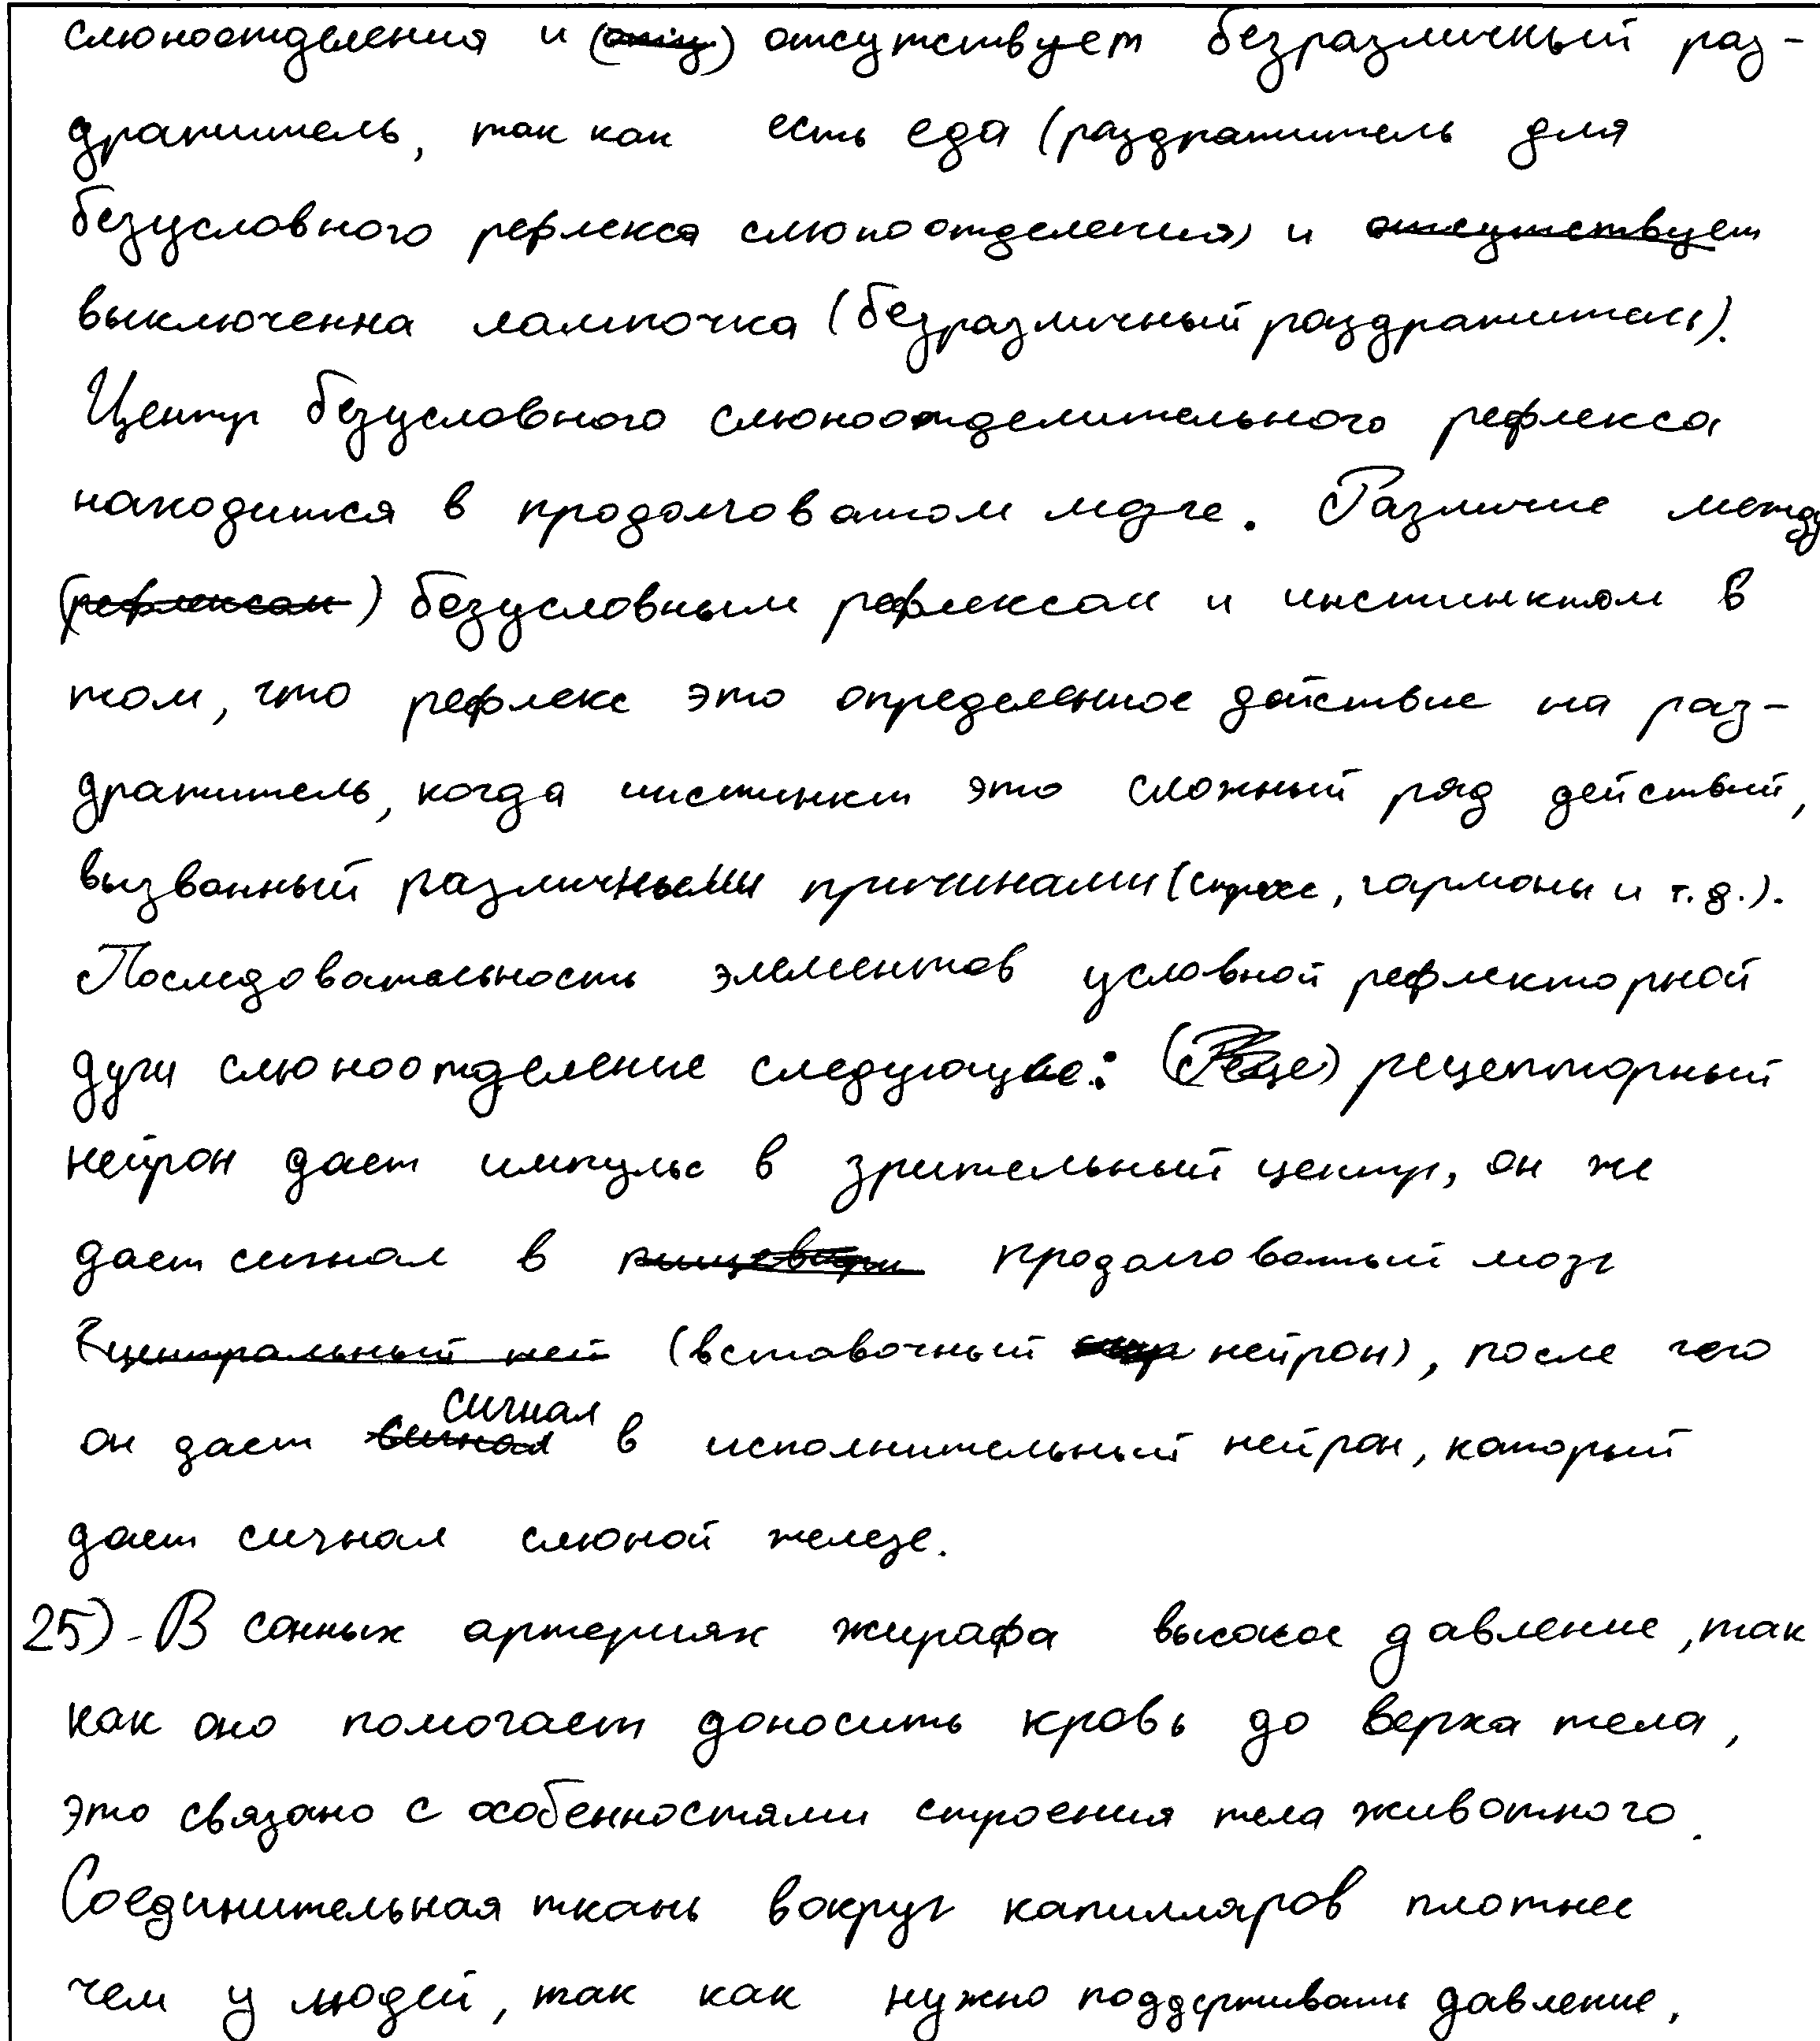 слюноотделения и (отсу) отсутствует безразличный раз-
дражитель, так как есть еда (раздражитель для
безусловного рефлекса слюноотделения) и отсутствует
выключенна лампочка (безразличный раздражитель).
Центр безусловного слюноотделительного рефлекса
находится в продолговатом мозге. Различие между
(рефлексом) безусловным рефлексом и инстинктом в
том, что рефлекс это определенное действие на раз-
дражитель, когда инстинкт это сложный ряд действий,
вызванный различными причинами (стресс, гармоны и т.д.).
Последовательность элементов условной рефлекторной
дуги слюноотделение следующие: (Реце) рецепторный
нейрон дает импульс в зрительный центр, он же
дает сигнал в продолговатый мозг
(центральный ней (вставочный нейрон), после чего
он дает сигнал в исполнительный нейрон, который
дает сигнал слюной железе.
25) - В сонных артериях жирафа высокое давление, так
как оно помогает доносить кровь до верха тела,
это связано с особенностями строения тела животного.
Соединительная ткань вокруг капилляров плотнее
чем у людей, так как нужно поддерживать давление,